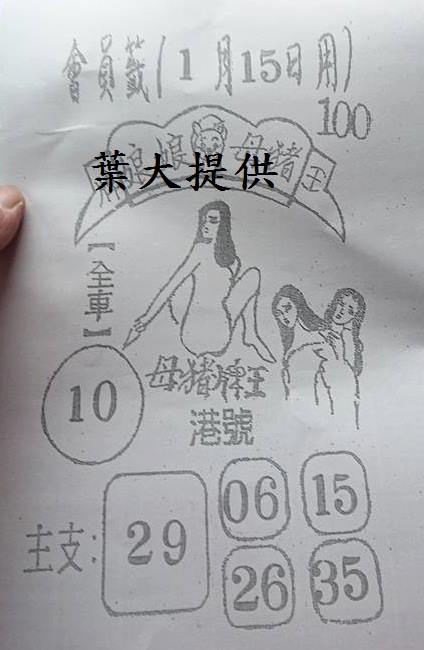 會員籤(1月15日用)
100
娘 母豬王
葉大提供
【全車】
10
母豬牌王
港號
主支:
29
06
15
26
35